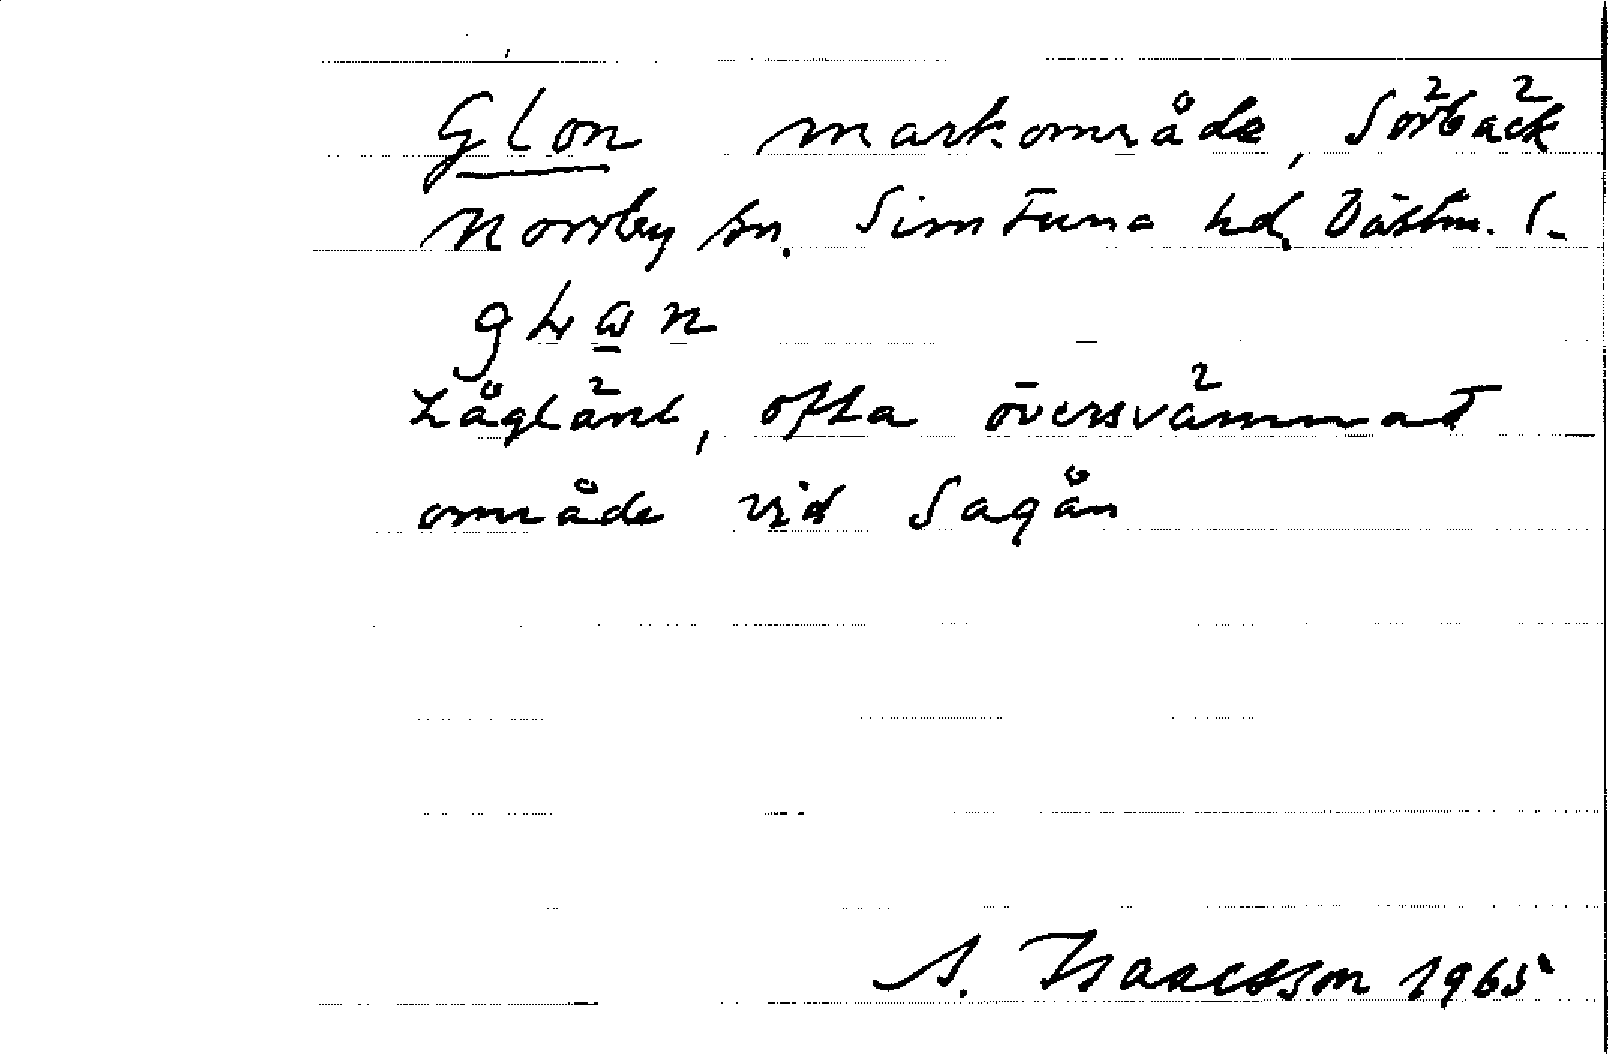 Glon markområde, Sörbäck
Norrby sn. Simtuna hd, Västm. l.
Låglänt, ofta översvämmat
område vid Sagån
A. Isaacsson 1965